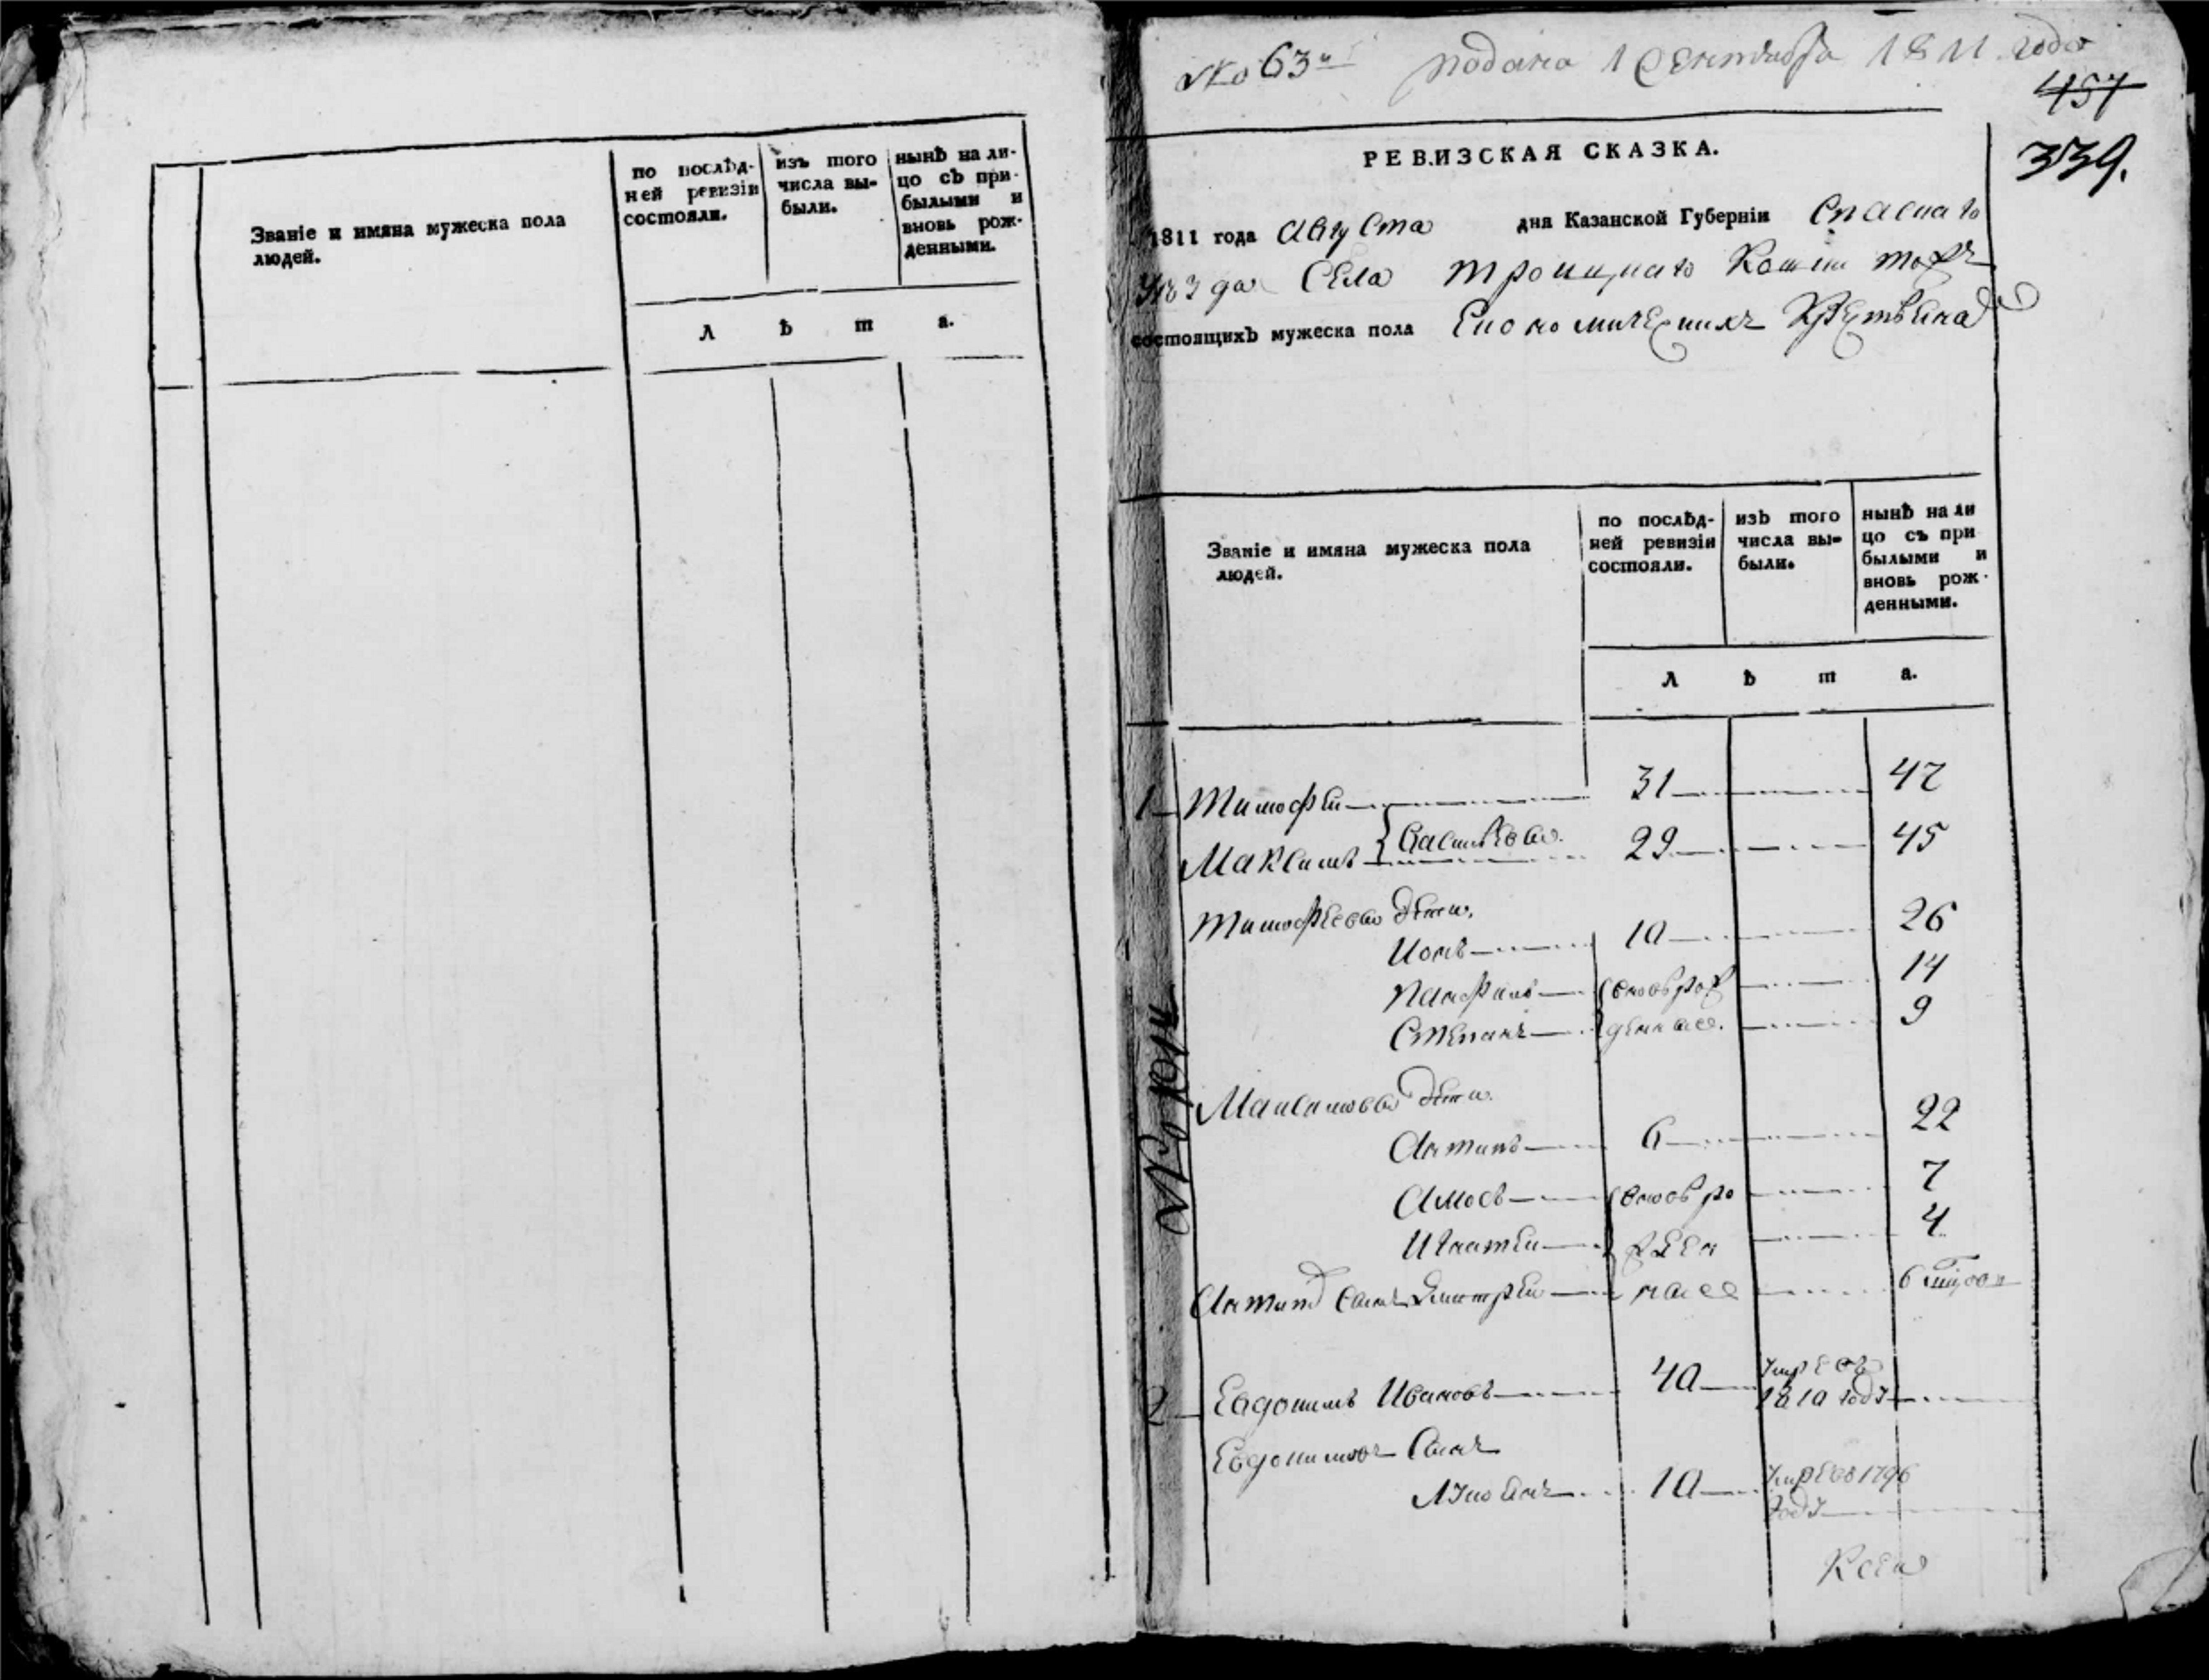 Званіе и имяна мужеска пола
людей.
по послѣд-
ней ревизіи
состояли.
изъ того
числа вы-
были.
нынѣ на ли-
цо съ при-
былыми и
вновь рож-
денными.
Л ѣ т а.
№ 63й подана 1 Сентября 1811 года
457
339.
РЕВИЗСКАЯ СКАЗКА.
1811 года Августа дня Казанской Губерніи Спаскаго
Уѣзда Села Троицкаго
состоящихъ мужеска пола Економическихъ Крестьянъ
Званіе и имяна мужеска пола
людей.
по послѣд-
ней ревизіи
состояли.
изъ того
числа вы-
были.
нынѣ на ли
цо съ при
былыми и
вновь рож-
денными.
Л ѣ т а.
1 Тимофей 31 47
Васильевы
Максимъ 29 45
Тимофеевы дети
Ионъ 10 26
Панфилъ вновь рож 14
Степанъ денные 9
Максимовы дети
Антипъ 6 22
Амосъ вновь ро 7
Игнатей жден 4
Антипа сынъ Дмитрей ные 6
2 Евдокимъ Ивановъ 40 умре въ
1810 году
Евдокимовъ сынъ
Лукоянъ 10 умре въ 1796
году
Ксен